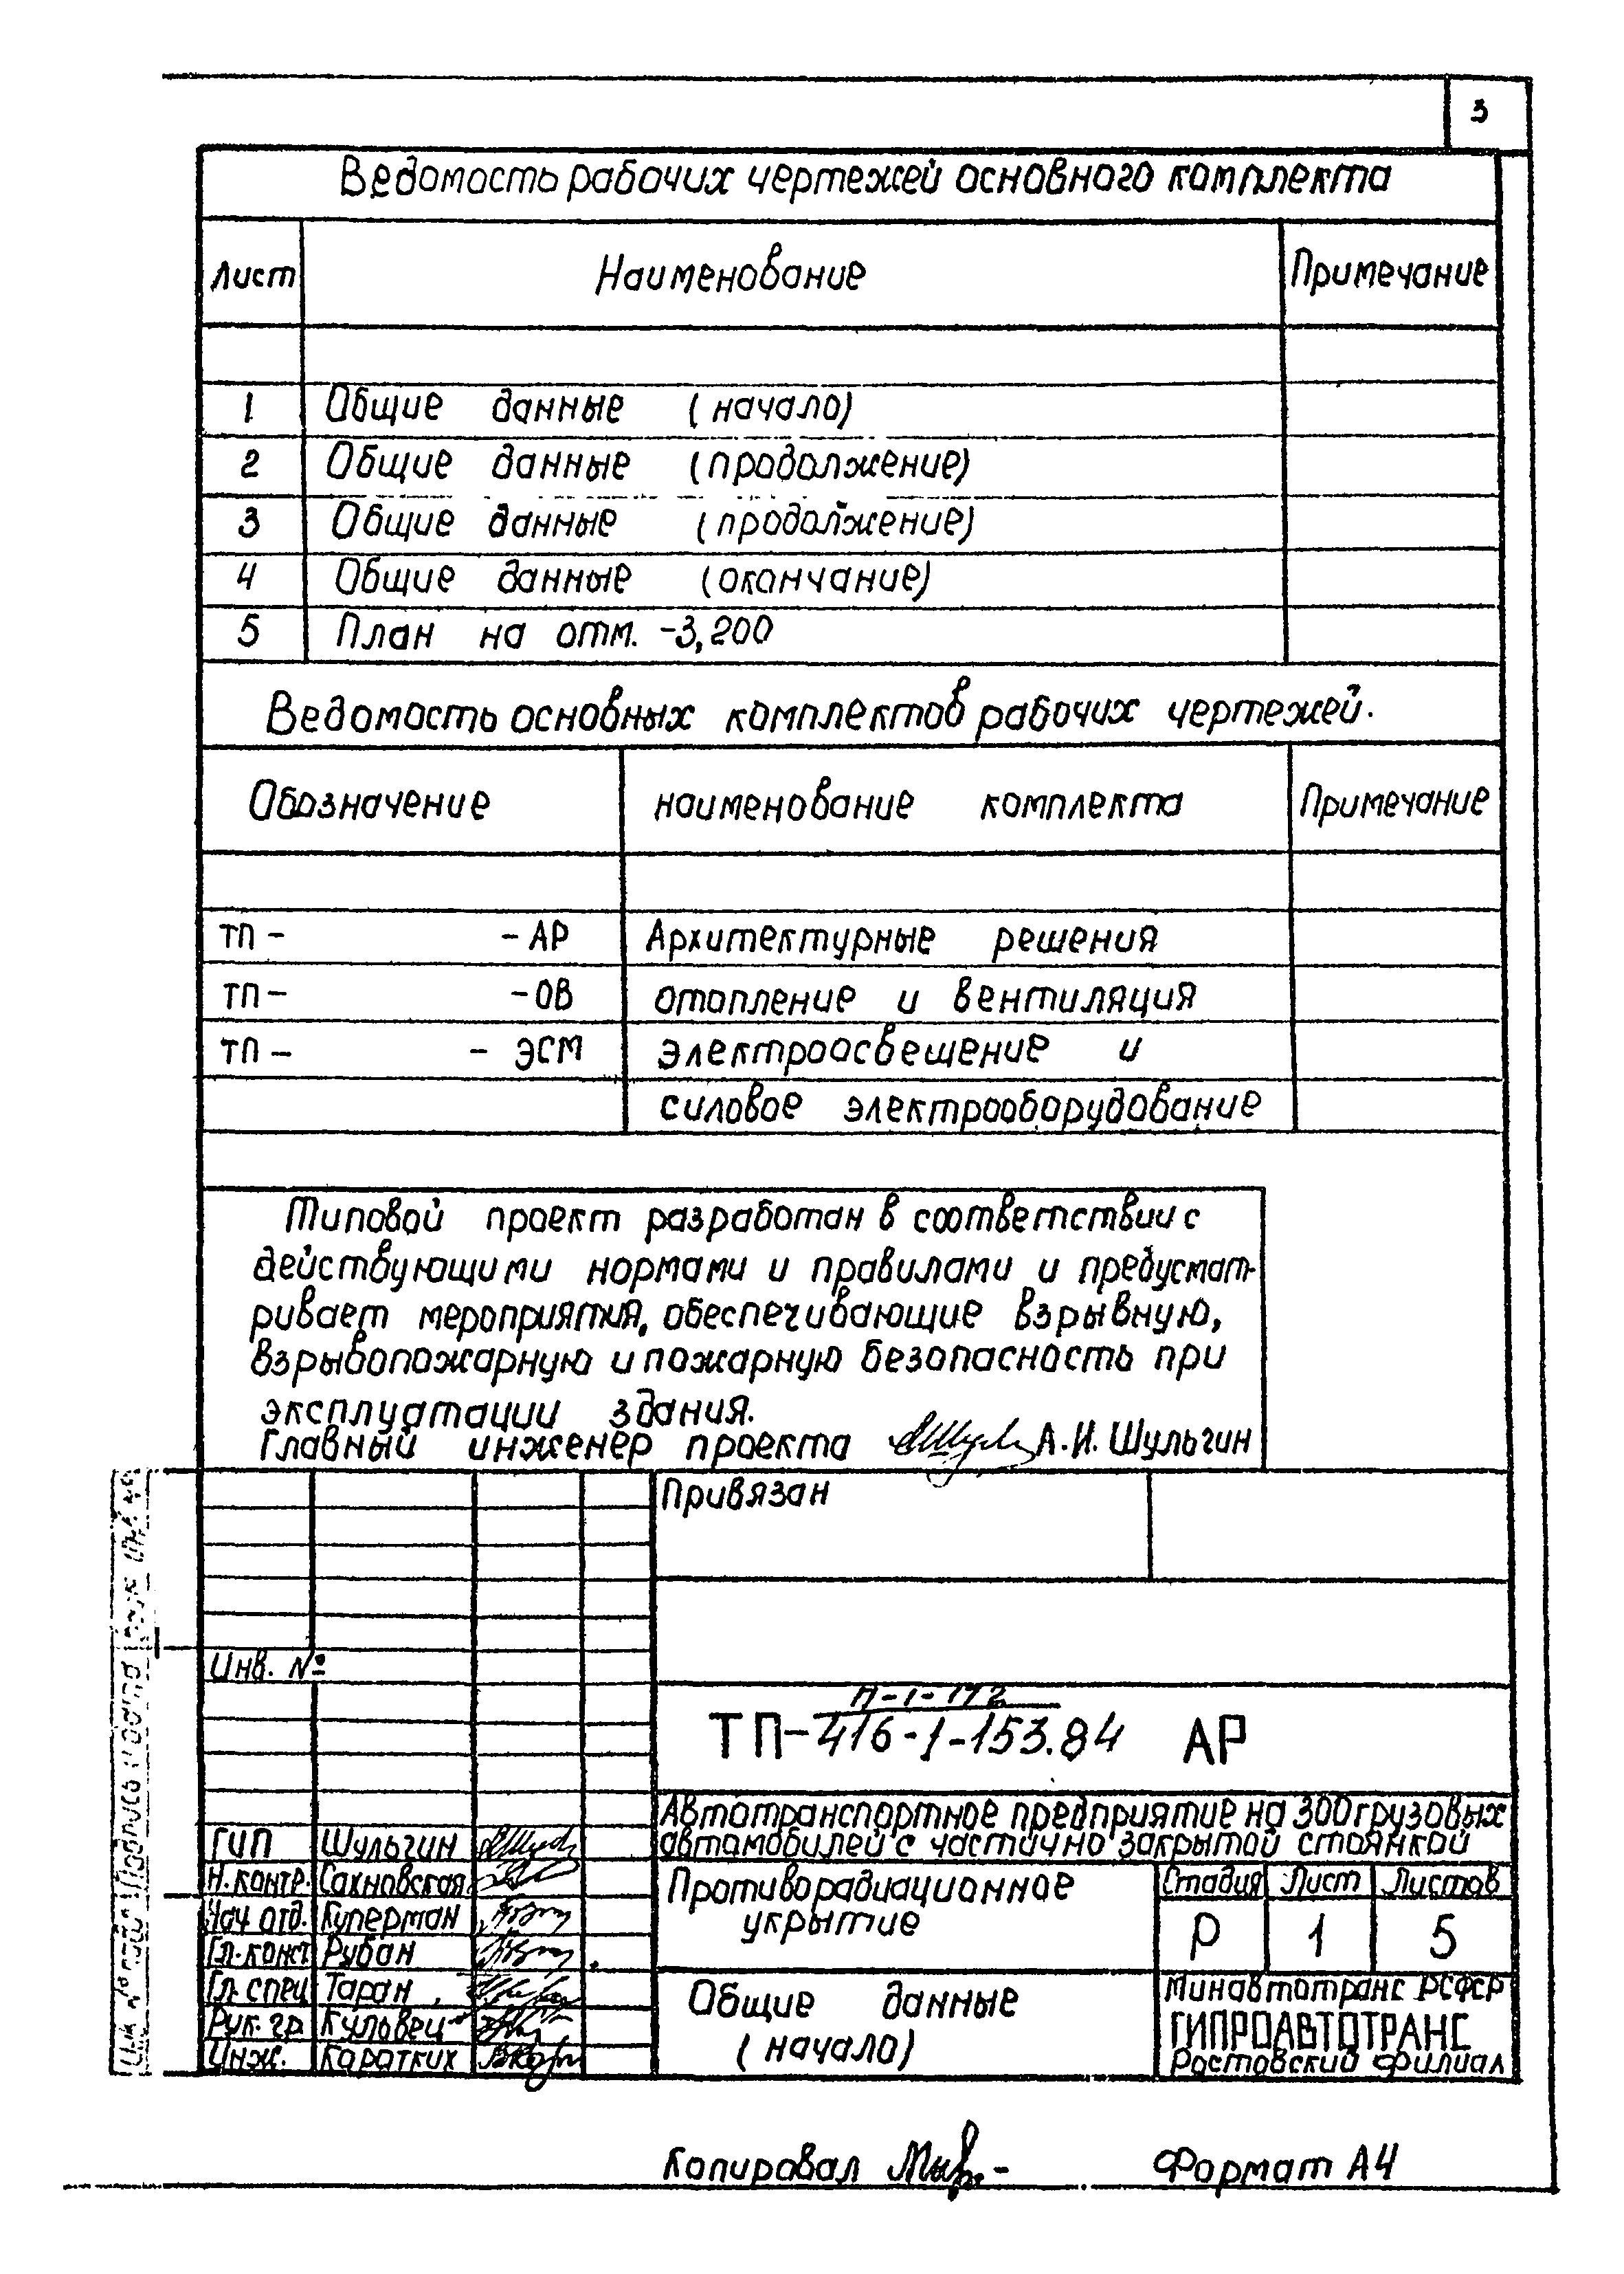 3
Ведомость рабочих чертежей основного комплекта
Лист Наименование Примечание
1 Общие данные (начало)
2 Общие данные (продолжение)
3 Общие данные (продолжение)
4 Общие данные (окончание)
5 План на отм. -3,200
Ведомость основных комплектов рабочих чертежей.
Обозначение наименование комплекта Примечание
ТП - - АР Архитектурные решения
ТП - - ОВ отопление и вентиляция
ТП - - ЭСМ электроосвещение и
силовое электрооборудование
Типовой проект разработан в соответствии с
действующими нормами и правилами и предусмат-
ривает мероприятия, обеспечивающие взрывную,
взрывопожарную и пожарную безопасность при
эксплуатации здания.
Главный инженер проекта А.И. Шульгин
Привязан
Инв. №
II-1-172
ТП-416-1-153.84 АР
Автотранспортное предприятие на 300 грузовых
автомобилей с частично закрытой стоянкой
ГИП Шульгин
Н. контр. Сахновская
Нач. отд. Куперман
Гл. конст Рубан
Гл. спец Таран
Рук. гр. Куловец
Инж. Коротких
Противорадиационное
укрытие
Стадия Лист Листов
Р 1 5
Общие данные
(начало)
Минавтотранс РСФСР
ГИПРОАВТОТРАНС
Ростовский филиал
Копировал
Формат А4